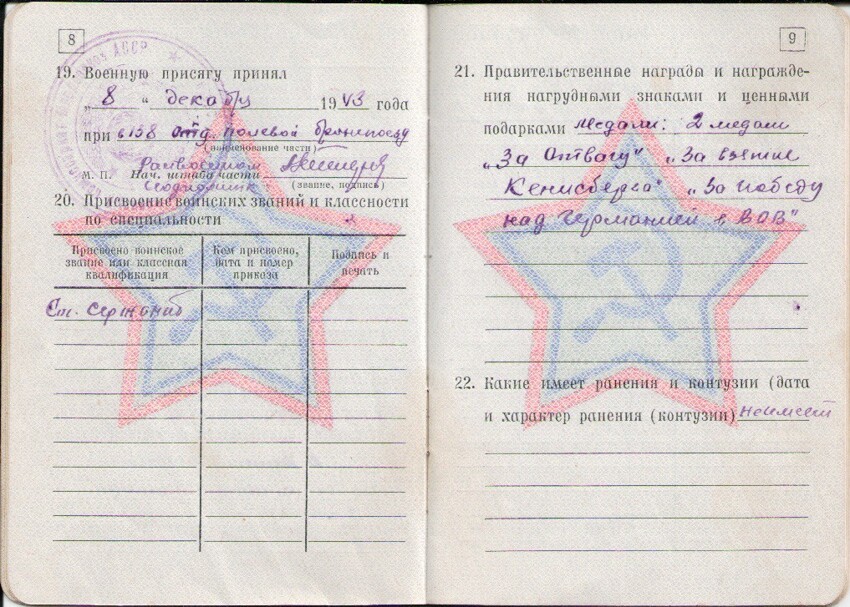 8
19. Военную присягу принял
„ 8 “ декабря 1943 года
при 6138 отд. полевой
(наименование части)
М. П. Нач. штаба части
(звание, подпись)
20. Присвоение воинских званий и классности
по специальности
Присвоено воинское
звание или классная
квалификация
Кем присвоено,
дата и номер
приказа
Подпись и
печать
Ст. сержант
9
21. Правительственные награды и награжде-
ния нагрудными знаками и ценными
подарками медали: 2 медали
„За Отвагу" „За взятие
Кенисберга" „За победу
над Германией в ВОВ"
22. Какие имеет ранения и контузии (дата
и характер ранения (контузии) не имеет